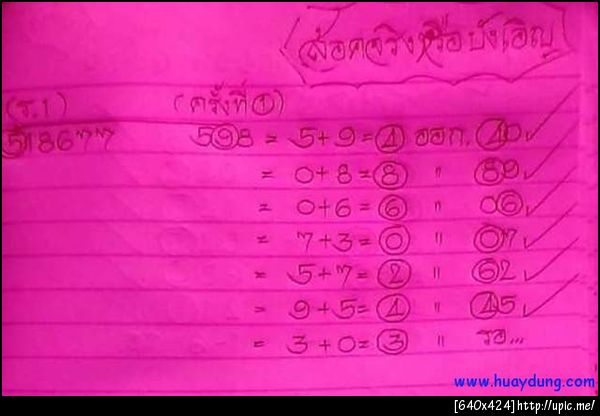 ล๊อคจริงหรือบังเอิญ
(ร.1) (ครั้งที่ 1)
518677 598 = 5+9=4 ออก. 40 ✓
= 0+8=8 " 89 ✓
= 0+6=6 " 06 ✓
= 7+3=0 " 07 ✓
= 5+7=2 " 62 ✓
= 9+5=4 " 45 ✓
= 3+0=3 " รอ...
www.huaydung.com
[640x424]http://upic.me/